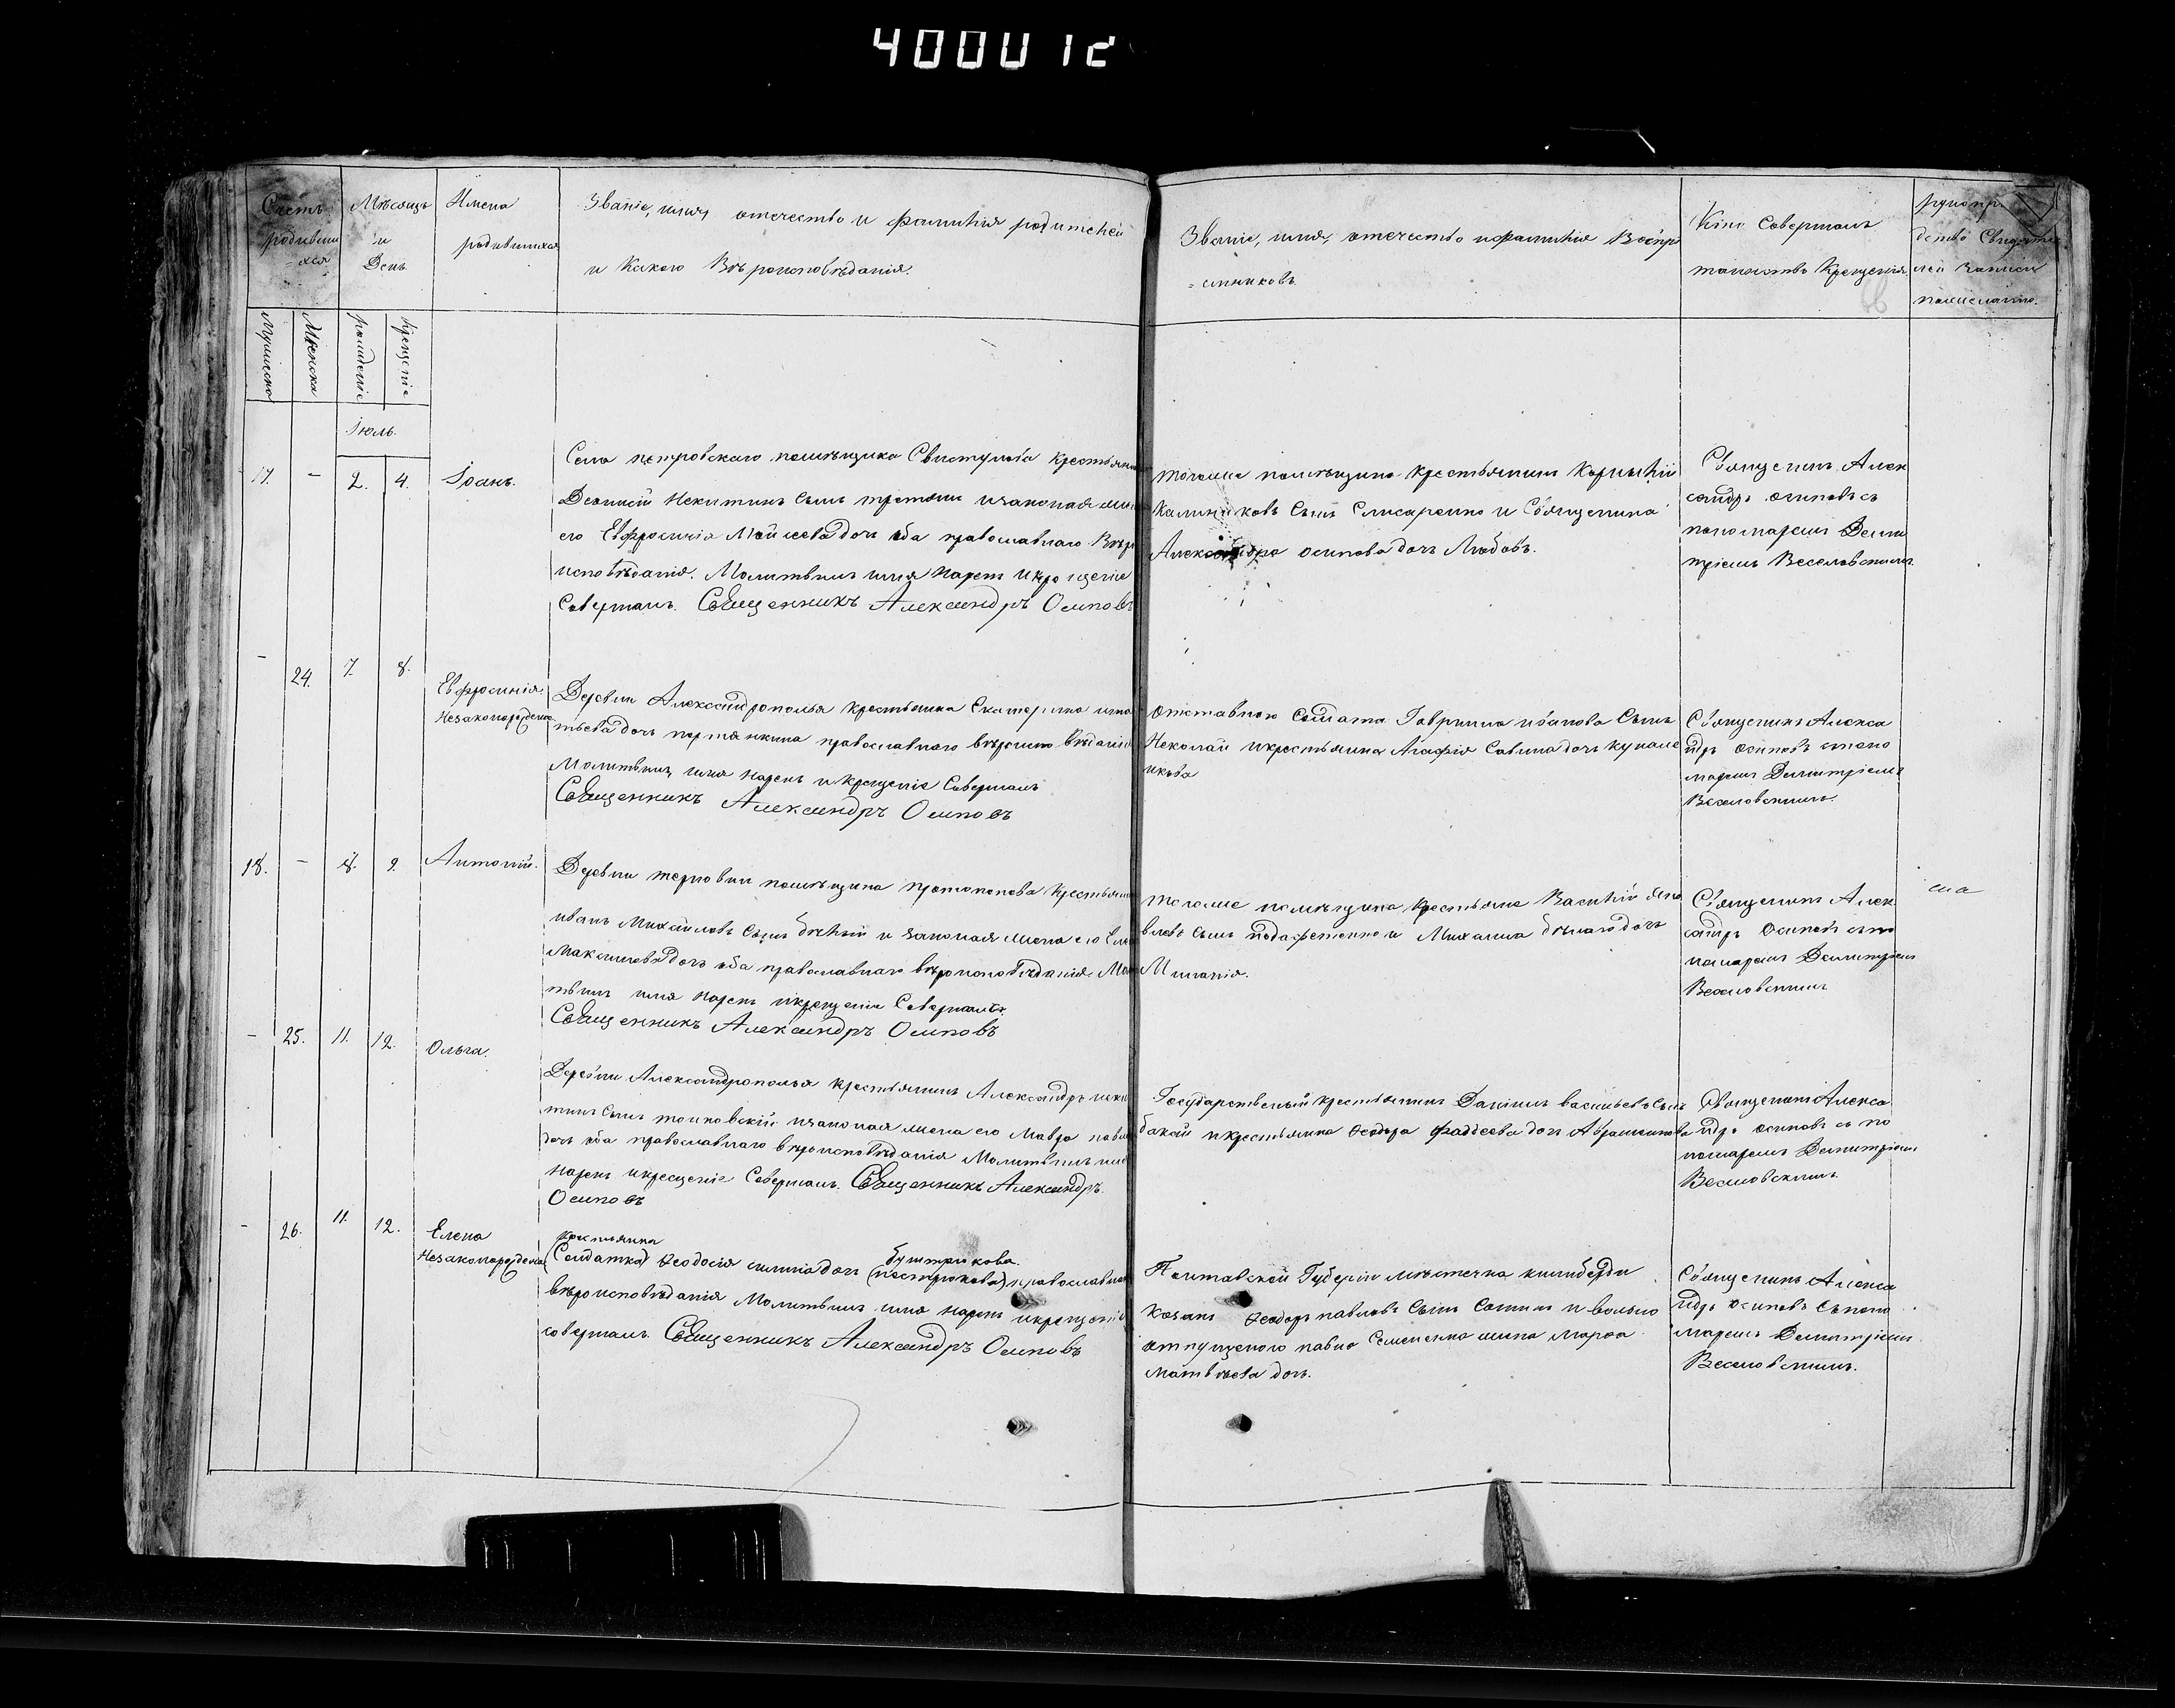 400U12
Счетъ родивши=хся
Мѣсяцъ и День
Имена родившихся
Званіе, имя, отечество и фамилія родителей
и Какого Вѣроисповѣданія.
Званіе, имя, отечество и фамилія Воспрі
=емниковъ.
Кто Совершалъ
таинство Крещенія
Мужеска
Женска
рожденіе
крещеніе
Іюль.
17. - 2. 4. Іоанъ.
Села петровскаго помѣщика Свистунова крестьянинъ
Никитинъ Сынъ и законая жена
его Евфросинія Мойсеева дочь оба православнаго Вѣро
исповѣданія. Молитвилъ имя нарекъ и крещеніе
Совершалъ. Священникъ Александръ Осиповъ
тогоже помѣщика крестьянинъ Корнилій
Калиниковъ Сынъ Слисаренко и Священика
Александра осипова дочь Любовь.
Священикъ Алек
сандръ осиповъ съ
пономаремъ Дими
тріемъ Веселовскимъ
- 24. 7. 8. Евфросинія.
Незаконорожденая
Деревни Александрополья крестьянка Екатерина игна
тьева дочь православнаго вѣроисповѣданія
Молитвилъ имя нарекъ и крещеніе Совершалъ
Священникъ Александръ Осиповъ
отставного Солдата Гавриила иванова Сынъ
Николай и крестьянка Агафія Савина дочь
Священикъ Алекса
ндръ осиповъ с поно
маремъ Димитріемъ
Веселовскимъ.
18. - 8. 9. Антоній.
Деревни терновки помѣщика протопопова крестьянинъ
иванъ Михайловъ Сынъ бѣлый и законая жена его
Максимова дочь оба православнаго вѣроисповѣданія Моли
твилъ имя нарекъ и крещеніе Совершалъ
Священникъ Александръ Осиповъ
тогоже помѣщика крестьяне Василій
Сынъ и Михаила бѣлаго дочь
Меланія.
Священикъ Алек
сандръ Осиповъ съ по
номаремъ Димитріемъ
Веселовскимъ
- 25. 11. 12. Ольга.
Деревни Александрополья крестьянинъ Александръ ники
тинъ Сынъ и законая жена его Мавра павлова
дочь оба православнаго вѣроисповѣданія Молитвилъ имя
нарекъ и крещеніе Совершалъ. Священникъ Александръ
Осиповъ
Государственый крестьянинъ Даніилъ васильевъ Сынъ
бакай и крестьянка Ѳеодора фаддеева дочь Абрашникова
Священикъ Алекса
ндръ осиповъ съ по
номаремъ Димитріемъ
Веселовскимъ.
- 26. 11. 12. Елена
Незаконорожденая
крестьянка
бутрюкова.
(Солдатка) Ѳеодосія дочь православнаго
вѣроисповѣданія Молитвилъ имя нарекъ и крещеніе
совершалъ Священникъ Александръ Осиповъ
Полтавской Губерніи мѣстечка кишберди
Козакъ Ѳеодоръ павловъ Сынъ и вольно
отпущеного павла Семененка жена Марѳа
матвѣева дочь.
Священикъ Алекса
ндръ осиповъ съ поно
маремъ Димитріемъ
Веселовскимъ.